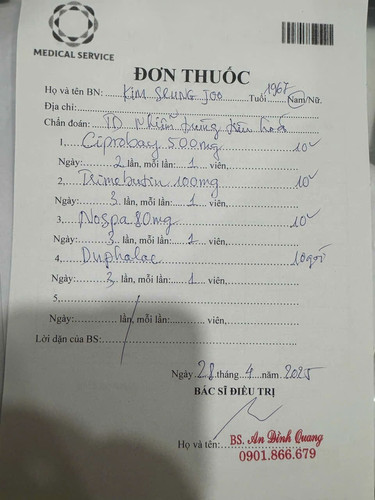 MEDICAL SERVICE
ĐƠN THUỐC
Họ và tên BN: KIM SEUNG JOO Tuổi 1967 Nam/Nữ.
Địa chỉ:
Chẩn đoán: TD Nhiễm trùng tiêu hoá
1, Ciprobay 500mg 10v
Ngày: 2 lần, mỗi lần: 1 viên,
2, Trimebutin 100mg 10v
Ngày: 3 lần, mỗi lần: 1 viên,
3, Nospa 80mg 10v
Ngày: 3 lần, mỗi lần: 1 viên,
4, Duphalac 10gói
Ngày: 3 lần, mỗi lần: 1 viên,
5,
Ngày: lần, mỗi lần: viên,
Lời dặn của BS:
Ngày 28 tháng 4 năm 2025
BÁC SĨ ĐIỀU TRỊ
Họ và tên: BS. An Đình Quang
0901.866.679